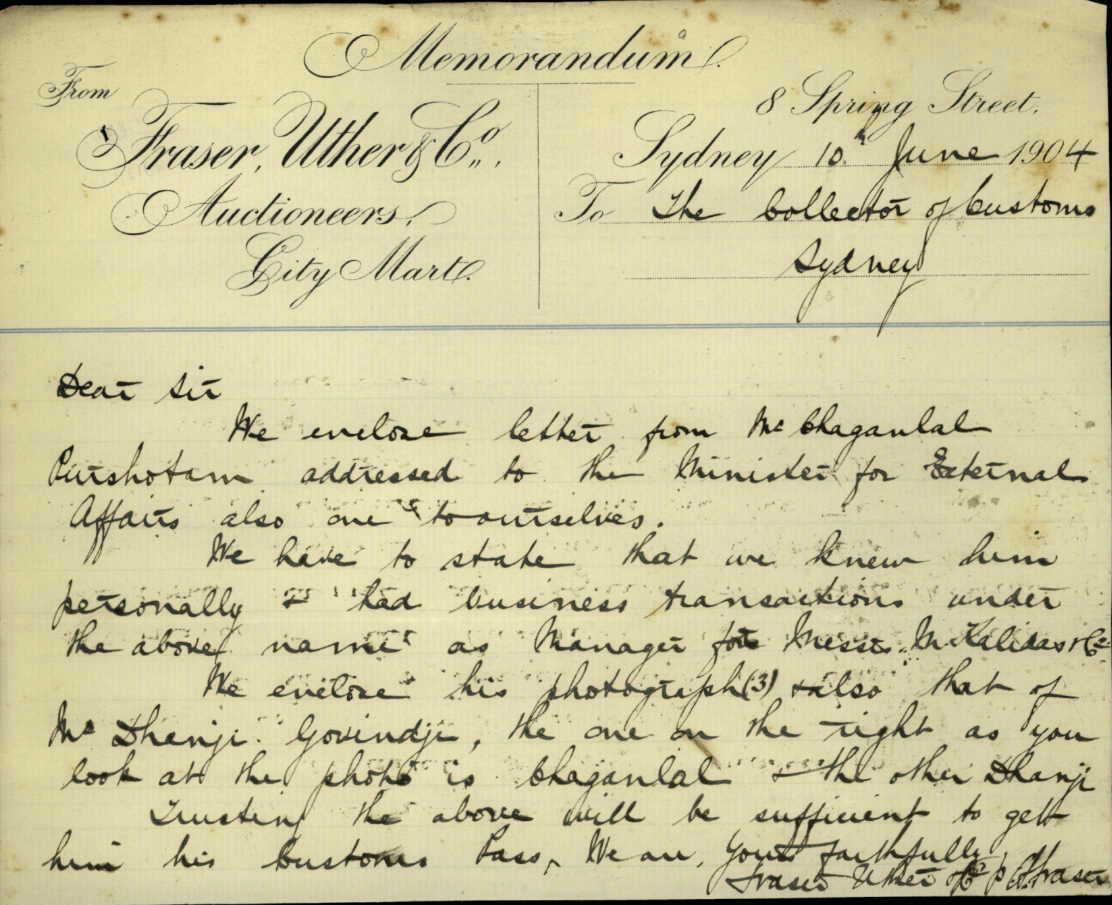 Memorandum.
From
Fraser, Uther & Co.,
Auctioneers,
City Mart.
8 Spring Street.
Sydney 10th June 1904
To The Collector of Customs
Sydney
Dear Sir
We enclose letter from Mr Chaganlal
Purshotam addressed to the Minister for External
Affairs also one to ourselves.
We have to state that we knew him
personally & had business transactions under
the above name as Manager for Messrs. M Kalidas & Co
We enclose his photograph (3) & also that of
Mr Dhanji Govindji, the one on the right as you
look at the photo is Chaganlal & the other Dhanji
Trusting the above will be sufficient to get
him his Customs Pass, We are, Yours faithfully,
Fraser Uther & Co p Fraser